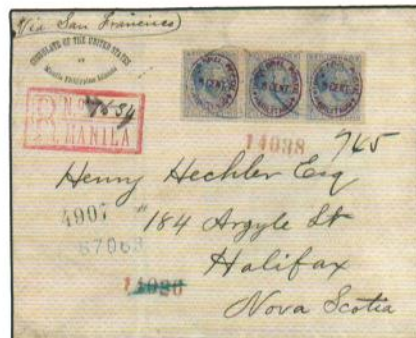 Via San Francisco
CONSULATE OF THE UNITED STATES
Manila Philippine Islands
R No 7634
MANILA
14038
765
Henry Hechler Esq
4907
184 Argyle St
67068
Halifax
Nova Scotia